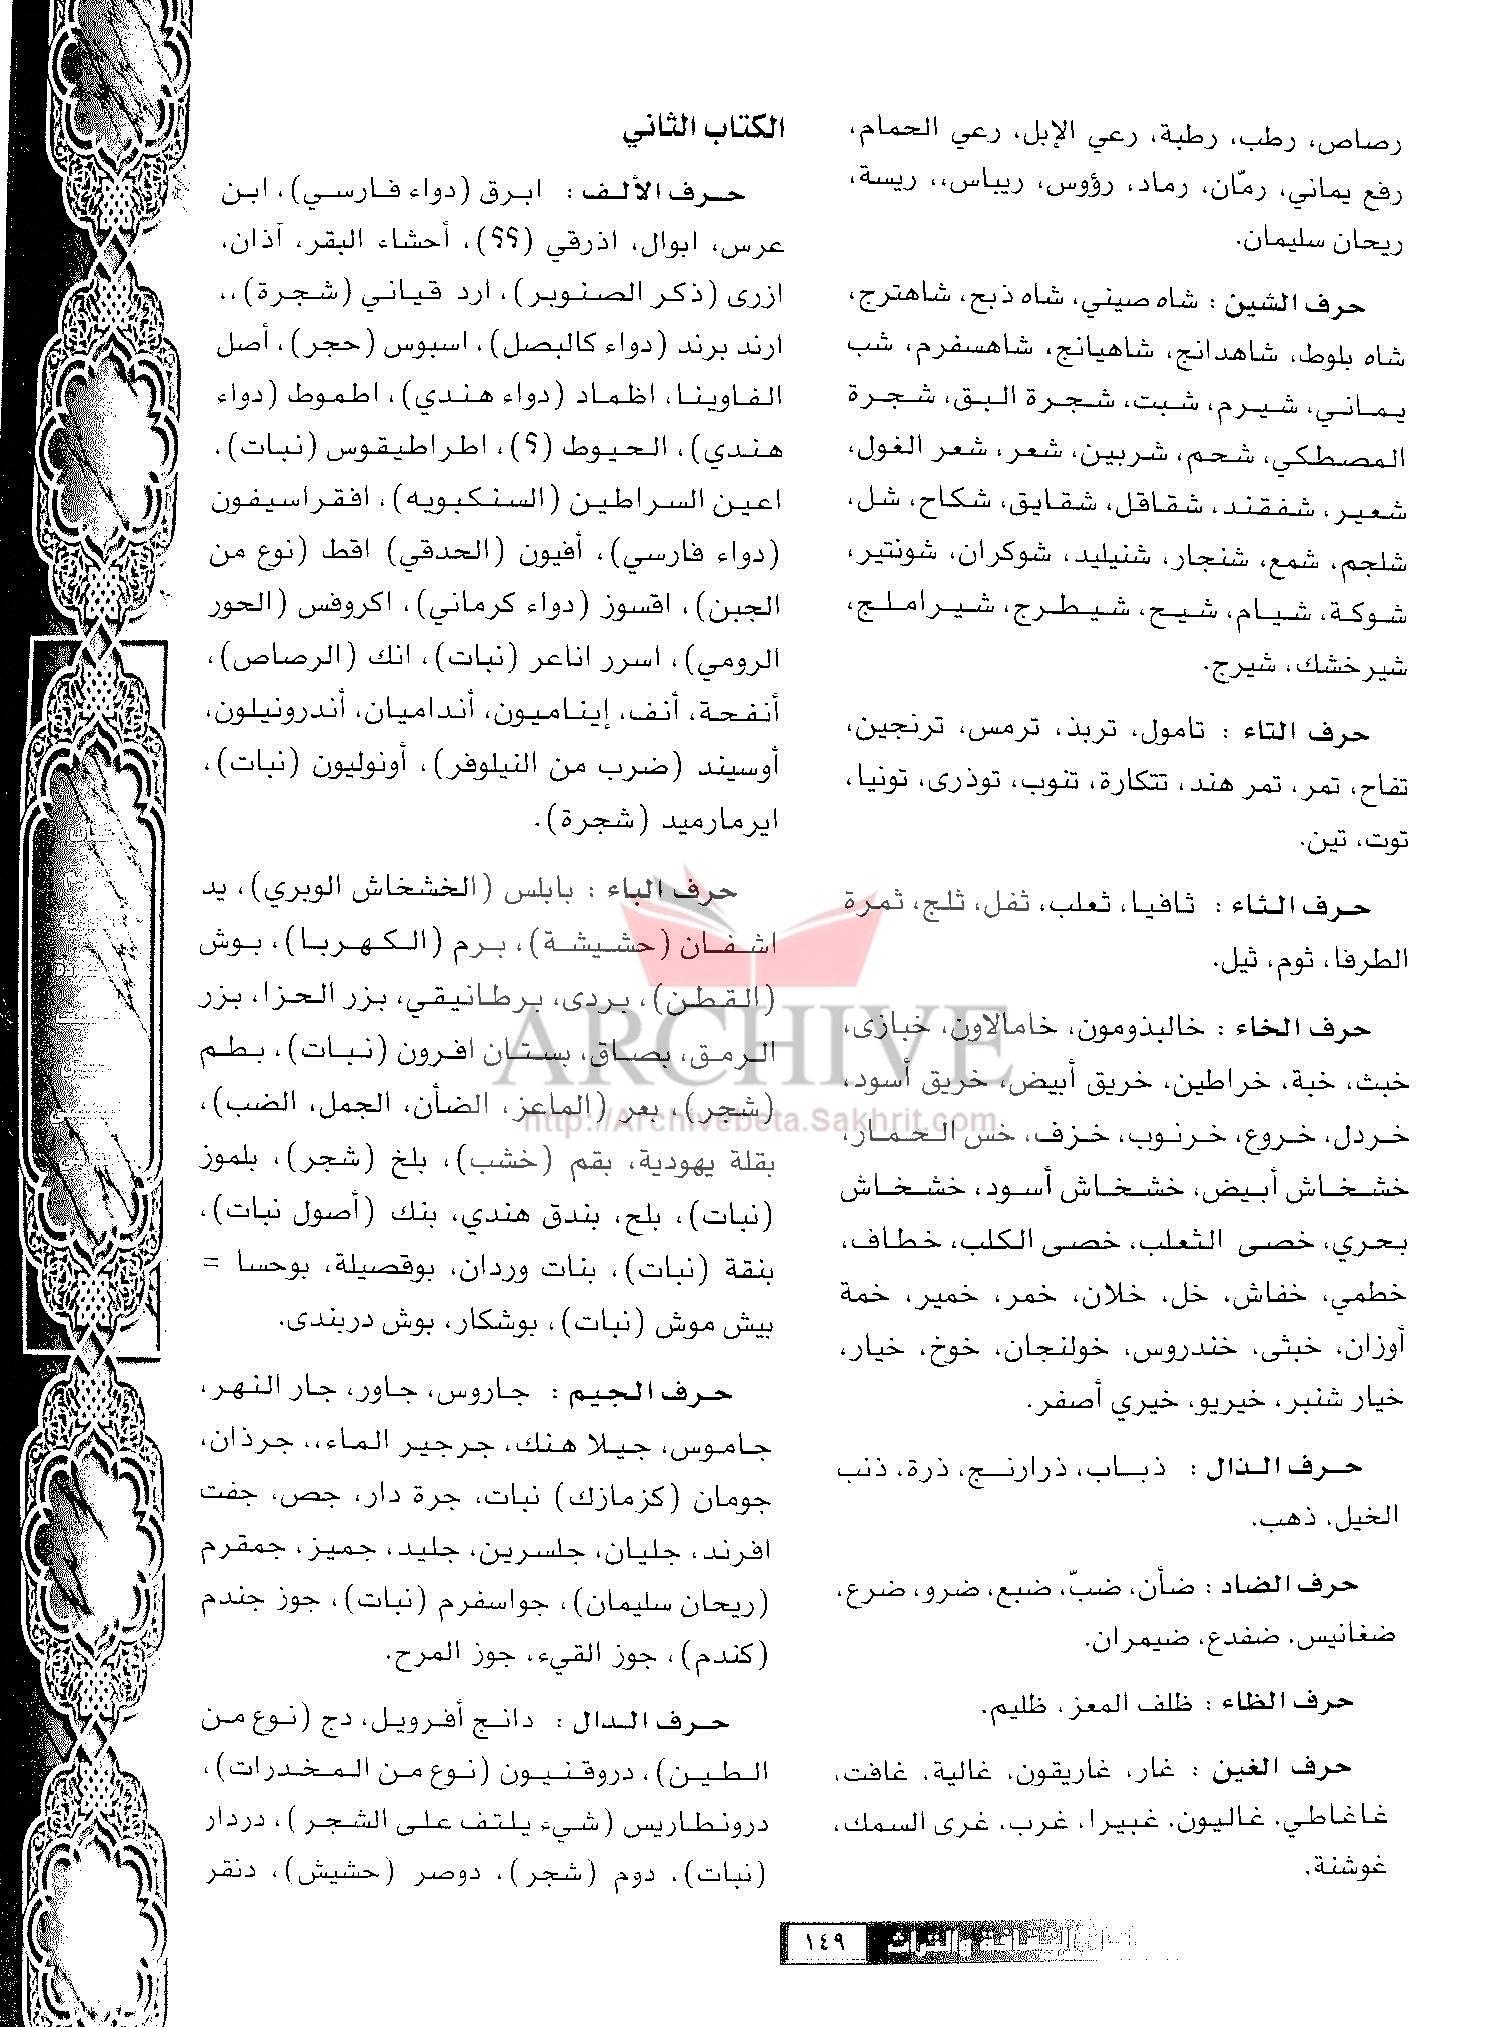 رصاص، رطب، رطبة، رعي الإبل، رعي الحمام،
رفع يماني، رمّان، رماد، رؤوس، ريباس،، ريسة،
ريحان سليمان.
حرف الشين : شاه صيني، شاه ذبح، شاهترج،
شاه بلوط، شاهدانج، شاهيانج، شاهسفرم، شب
يماني، شيرم، شبت، شجرة البق، شجرة
المصطكي، شحم، شربين، شعر، شعر الغول،
شعير، شفقند، شقاقل، شقايق، شكاح، شل،
شلجم، شمع، شنجار، شنيليد، شوكران، شونتير،
شوكة، شيام، شيح، شيطرج، شيراملج،
شيرخشك، شيرج.
حرف التاء : تامول، تربذ، ترمس، ترنجين،
تفاح، تمر، تمر هند، تتكارة، تنوب، توذرى، تونيا،
توت، تين.
حرف الثاء : ثافيا، ثعلب، ثفل، ثلج، ثمرة
الطرفا، ثوم، ثيل.
حرف الخاء : خاليذومون، خامالاون، خبازى،
خبث، خبة، خراطين، خريق أبيض، خريق أسود،
خردل، خروع، خرنوب، خزف، خس الحمار،
خشخاش أبيض، خشخاش أسود، خشخاش
بحري، خصى الثعلب، خصى الكلب، خطاف،
خطمي، خفاش، خل، خلان، خمر، خمير، خمة
أوزان، خبثى، خندروس، خولنجان، خوخ، خيار،
خيار شنبر، خيريو، خيري أصفر.
حرف الذال : ذباب، ذرارنج، ذرة، ذنب
الخيل، ذهب.
حرف الضاد : ضأن، ضبّ، ضبع، ضرو، ضرع،
ضغانيس، ضفدع، ضيمران.
حرف الظاء : ظلف المعز، ظليم.
حرف الغين : غار، غاريقون، غالية، غافت،
غاغاطي، غاليون، غبيرا، غرب، غرى السمك،
غوشنة.
الكتاب الثاني
حرف الألف : ابرق (دواء فارسي)، ابن
عرس، ابوال، اذرقي (؟؟)، أحشاء البقر، آذان،
ازرى (ذكر الصنوبر)، ارد قياني (شجرة)،،
ارند برند (دواء كالبصل)، اسبوس (حجر)، أصل
الفاوينا، اظماد (دواء هندي)، اطموط (دواء
هندي)، الحيوط (؟)، اطراطيقوس (نبات)،
اعين السراطين (السنكبويه)، افقراسيفون
(دواء فارسي)، أفيون (الحدقي) اقط (نوع من
الجبن)، اقسوز (دواء كرماني)، اكروفس (الحور
الرومي)، اسرر اناعر (نبات)، انك (الرصاص)،
أنفحة، أنف، إيناميون، أنداميان، أندرونيلون،
أوسيند (ضرب من النيلوفر)، أونوليون (نبات)،
ايرمارميد (شجرة).
حرف الباء : بابلس (الخشخاش الوبري)، يد
اشفان (حشيشة)، برم (الكهربا)، بوش
(القطن)، بردى، برطانيقي، بزر الحزا، بزر
الرمق، بصاق، بستان افرون (نبات)، بطم
(شجر)، بعر (الماعز، الضأن، الجمل، الضب)،
بقلة يهودية، بقم (خشب)، بلخ (شجر)، بلموز
(نبات)، بلح، بندق هندي، بنك (أصول نبات)،
بنقة (نبات)، بنات وردان، بوقصيلة، بوحسا =
بيش موش (نبات)، بوشكار، بوش دربندى.
حرف الجيم : جاروس، جاور، جار النهر،
جاموس، جيلا هنك، جرجير الماء،، جرذان،
جومان (كزمازك) نبات، جرة دار، جص، جفت
افرند، جليان، جلسرين، جليد، جميز، جمقرم
(ريحان سليمان)، جواسفرم (نبات)، جوز جندم
(كندم)، جوز القيء، جوز المرح.
حرف الدال : دانج أفرويل، دج (نوع من
الطين)، دروقنيون (نوع من المخدرات)،
درونطاريس (شيء يلتف على الشجر)، دردار
(نبات)، دوم (شجر)، دوصر (حشيش)، دنقر
ARCHIVE
http://Archivebeta.Sakhrit.com
١٤٩